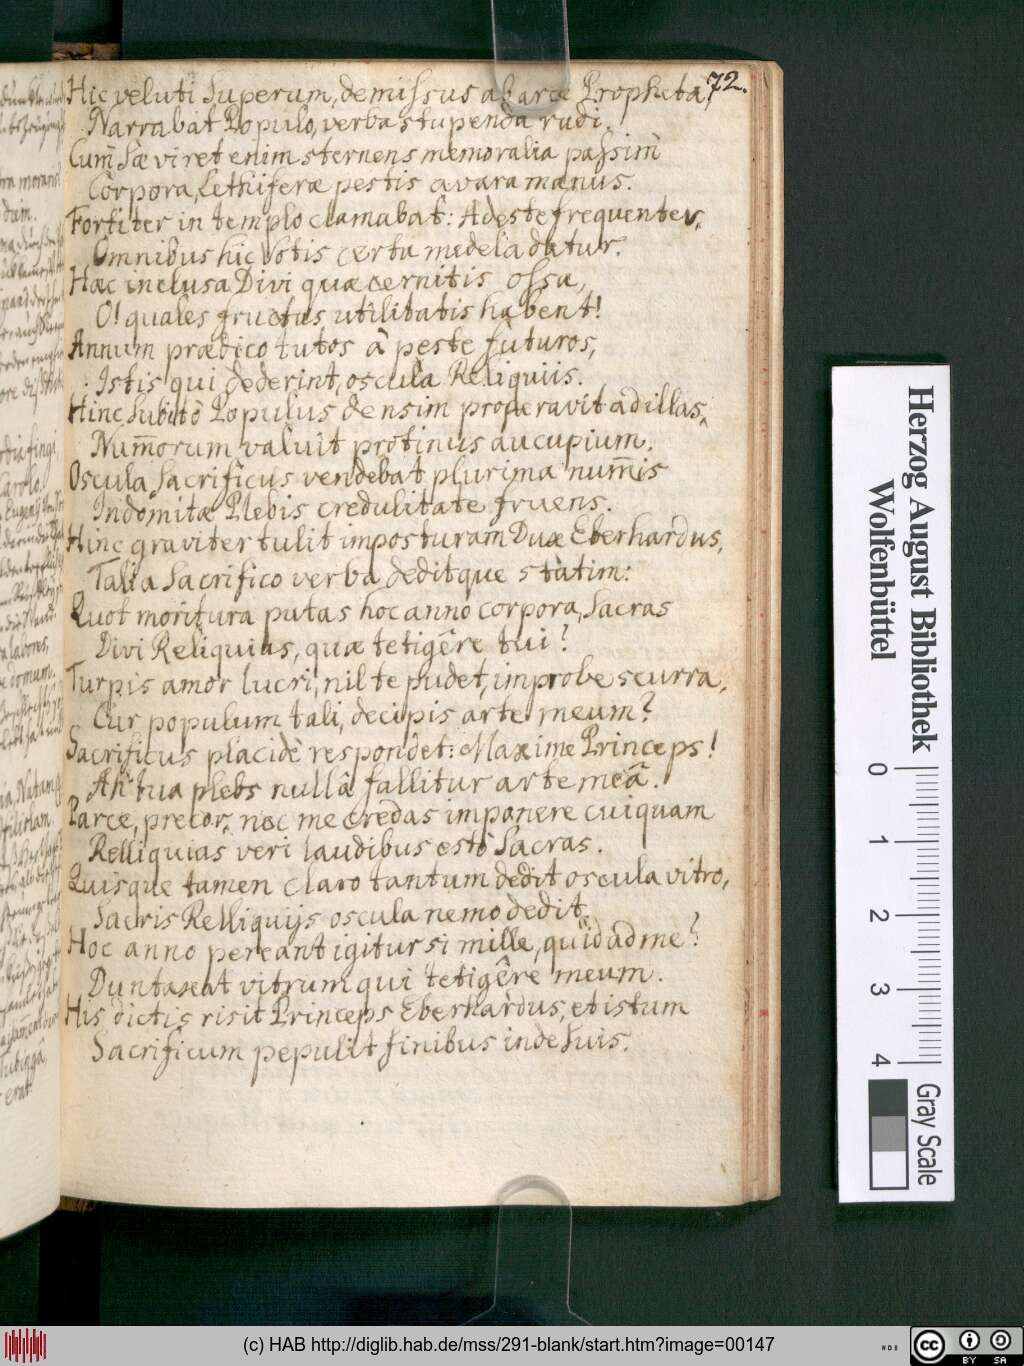 72.
Hic veluti Superum, demissus ab arce Propheta,
Narrabat Populo, verba stupenda rudi.
Cum̄ Sæviret enim sternens memoralia passim
Corpora, Lethiferæ pestis avara manus.
Fortiter in templo clamabat: Adeste frequenter,
Omnibus hic Votis certa medela datur.
Hæc inclusa Divi quæ cernitis ossa,
O! quales fructus utilitatis habent!
Annum prædico tutos â peste futuros,
Istis qui dederint, oscula Reliquiis.
Hinc Subitò Populus densim properavit ad illas,
Num̄orum valuit protinus aucupium.
Oscula Sacrificus vendebat plurima num̄is
Indomitæ Plebis credulitate fruens.
Hinc graviter tulit imposturam Dux Eberhardus,
Talia Sacrifico verba deditque statim:
Quot moritura putas hoc anno corpora, Sacras
Divi Reliquias, quæ tetigêre tui?
Turpis amor lucri, nil te pudet, improbe scurra,
Cur populum tali, decipis arte meum?
Sacrificus placidè respondet: Maxime Princeps!
Ah tua plebs nullâ fallitur arte meâ.
Parce, precor, nec me credas imponere cuiquam
Relliquias veri laudibus esto Sacras.
Quisque tamen claro tantum dedit oscula vitro,
Sacris Relliquijs oscula nemo dedit.
Hoc anno pereant igitur si mille, quid ad me?
Duntaxat vitrum qui tetigêre meum.
His dictis risit Princeps Eberhardus, et istum
Sacrificum pepulit finibus inde Suis.
Herzog August Bibliothek
Wolfenbüttel
0 1 2 3 4
Gray Scale
(c) HAB http://diglib.hab.de/mss/291-blank/start.htm?image=00147
WDB
cc BY SA